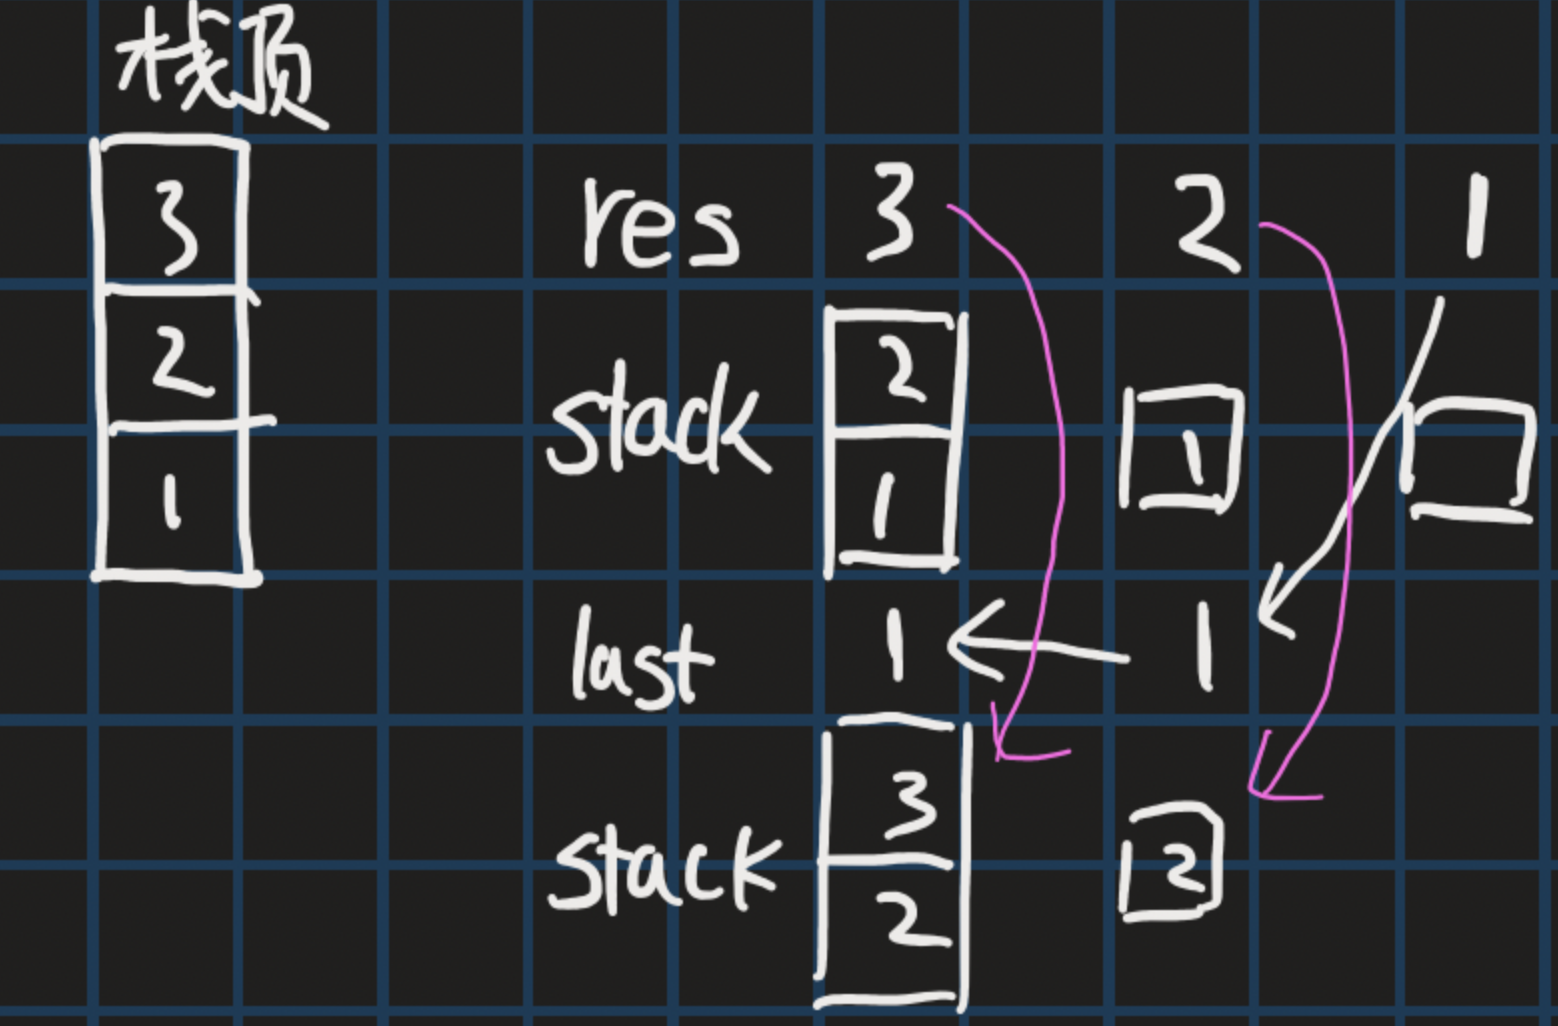 栈顶
3
2
1
res 3 2 1
stack 2 1
1
last 1 1
stack 3 2
2